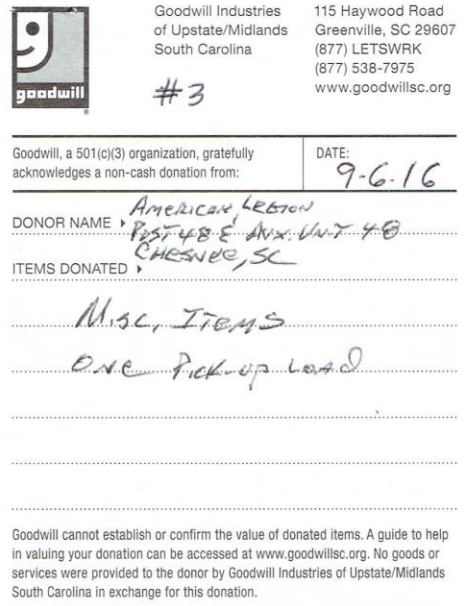 goodwill
Goodwill Industries
of Upstate/Midlands
South Carolina
115 Haywood Road
Greenville, SC 29607
(877) LETSWRK
(877) 538-7975
www.goodwillsc.org
#3
Goodwill, a 501(c)(3) organization, gratefully
acknowledges a non-cash donation from:
DATE:
9-6-16
American Legion
DONOR NAME Post 48 & Aux. Unt 48
Chesnee, SC
ITEMS DONATED
Misc, Items
One Pick-up Load
Goodwill cannot establish or confirm the value of donated items. A guide to help
in valuing your donation can be accessed at www.goodwillsc.org. No goods or
services were provided to the donor by Goodwill Industries of Upstate/Midlands
South Carolina in exchange for this donation.